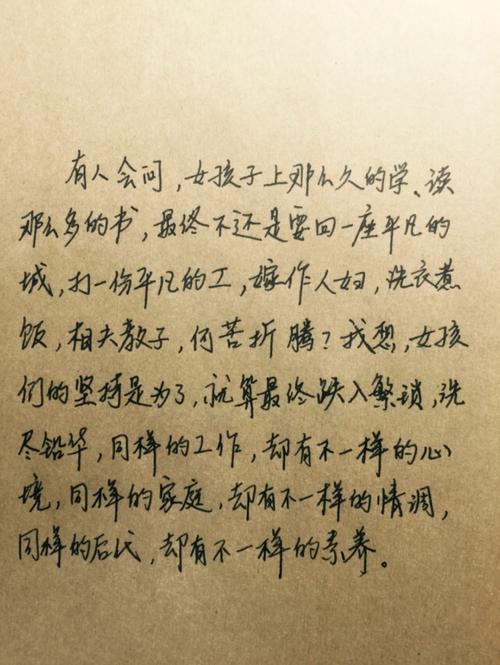 有人会问，女孩子上那么久的学、读
那么多的书，最终不还是要回一座平凡的
城，打一份平凡的工，嫁作人妇，洗衣煮
饭，相夫教子，何苦折腾？我想，女孩
们的坚持是为了，就算最终跌入繁琐，洗
尽铅华，同样的工作，却有不一样的心
境，同样的家庭，却有不一样的情调，
同样的后代，却有不一样的素养。